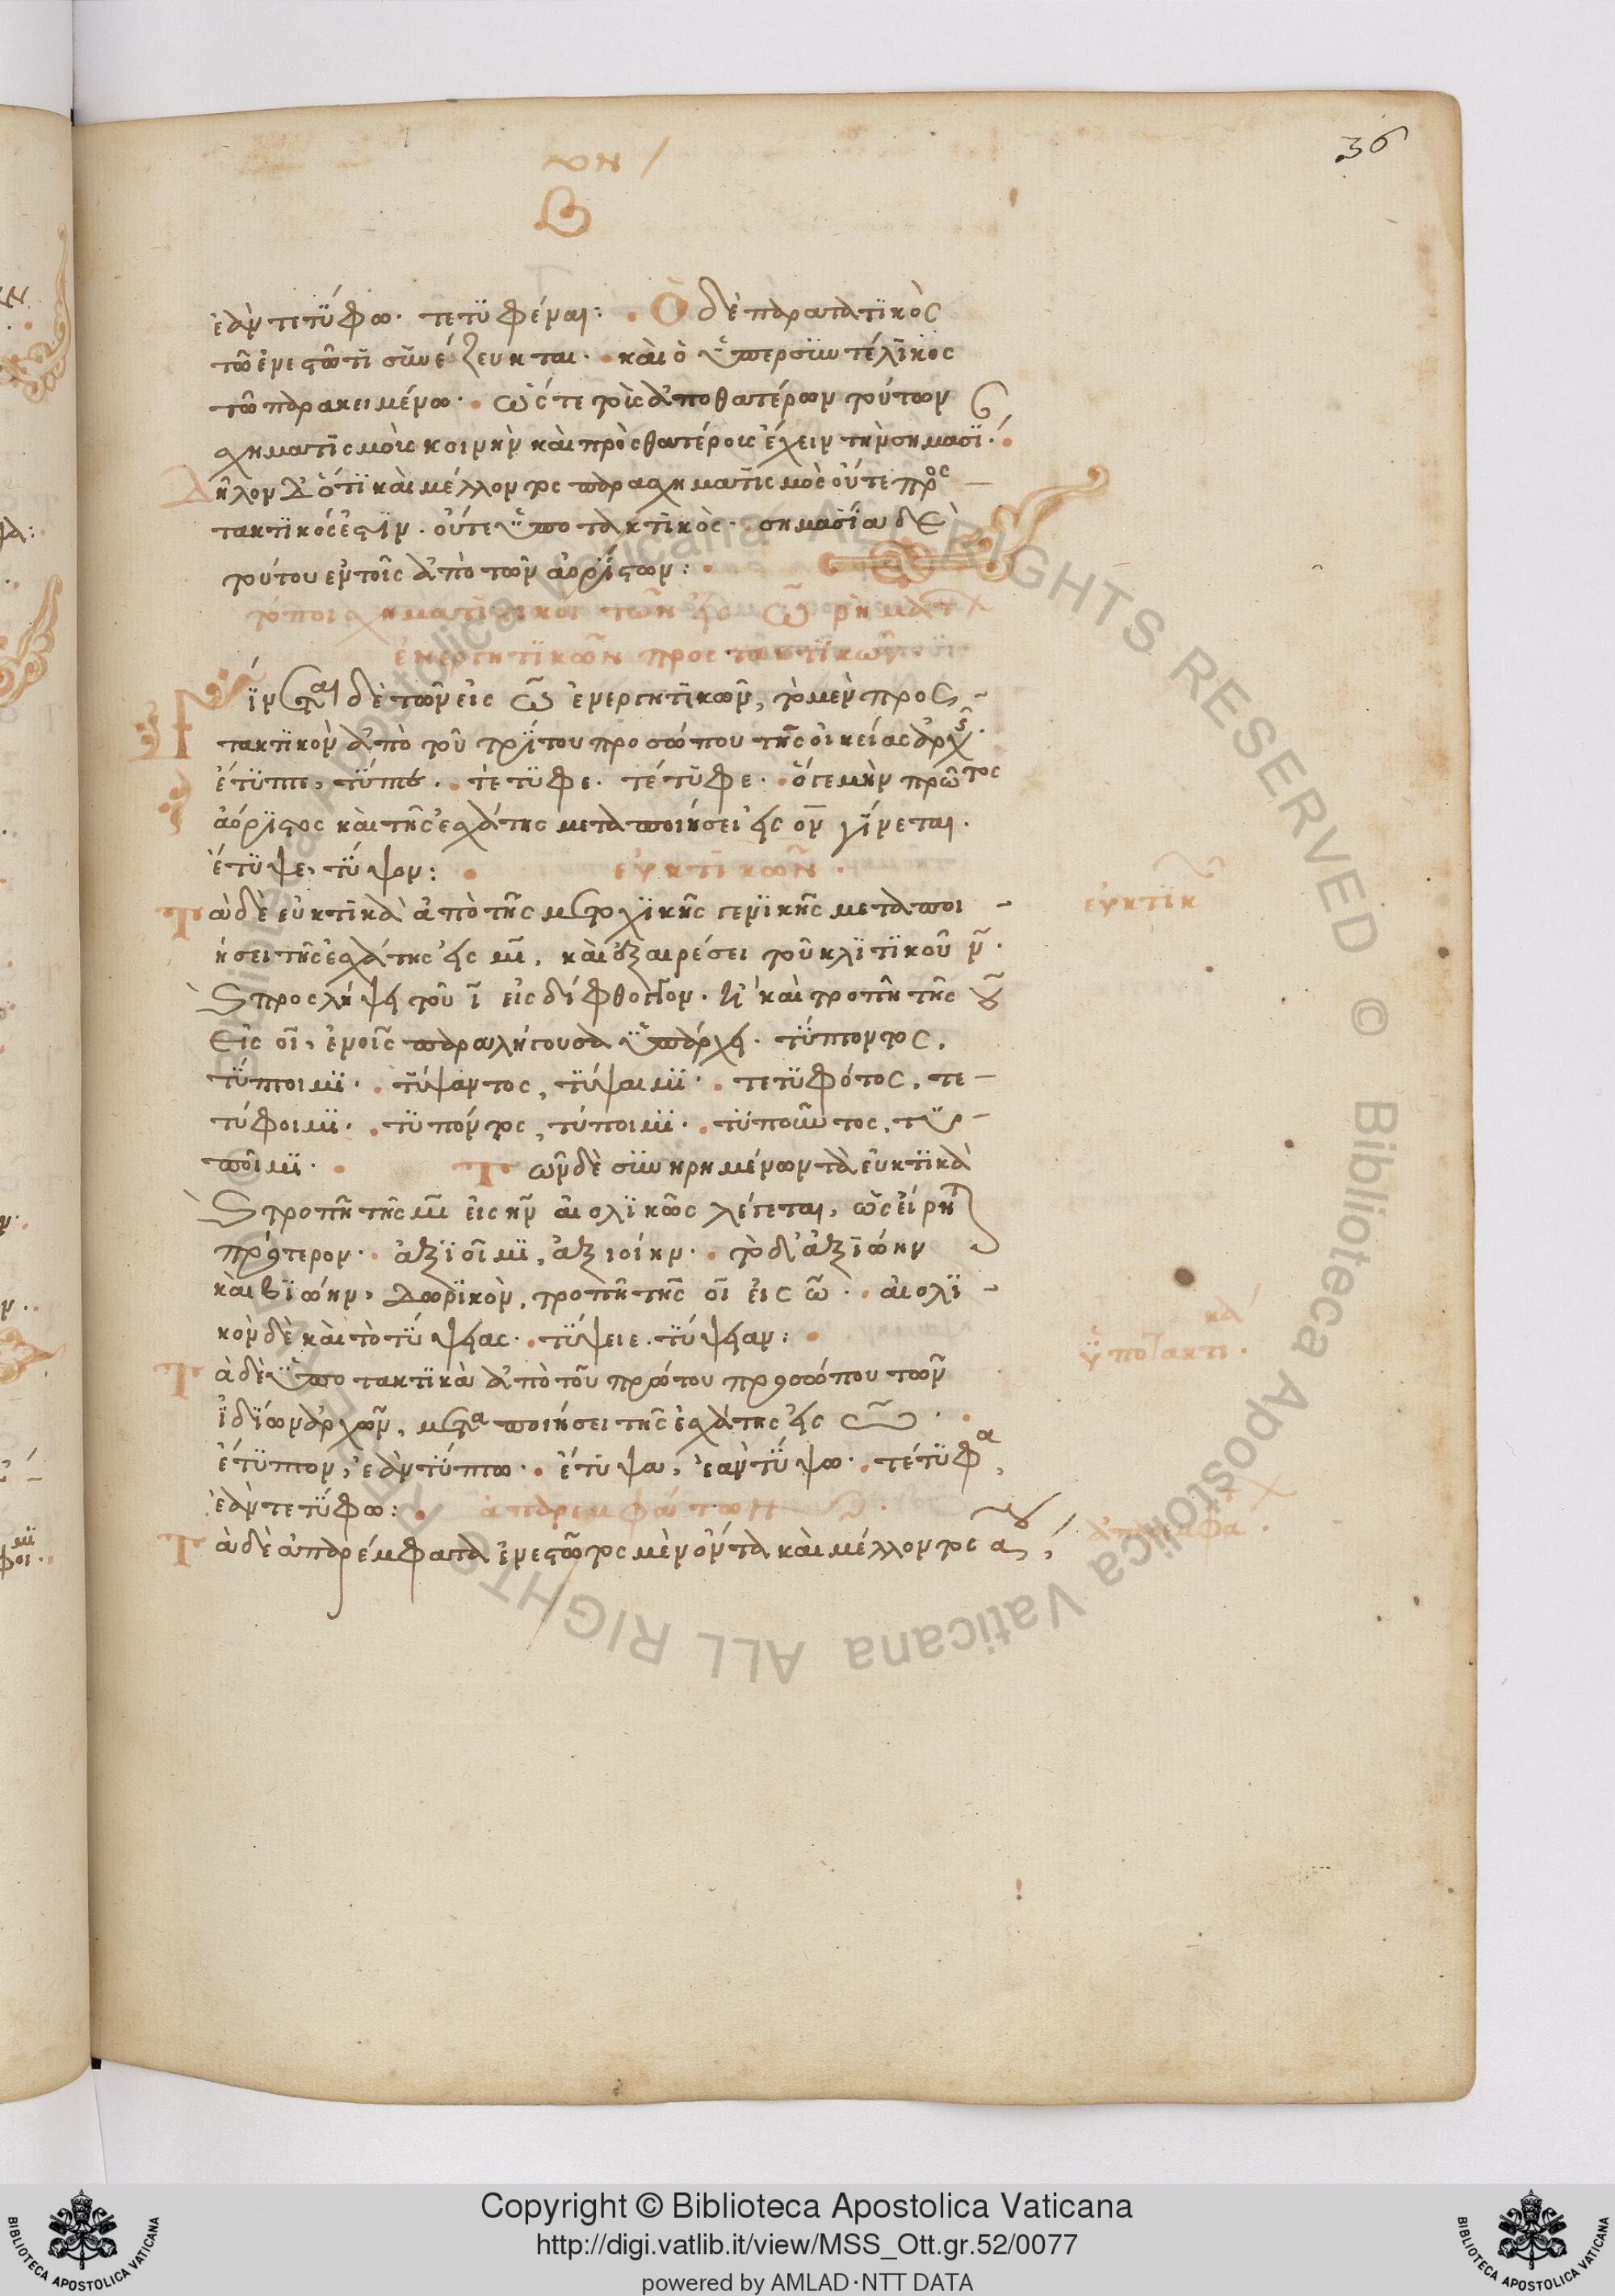 36
ων
Β
ἐὰν τετύφω. τετυφέναι: Ὁ δὲ παρατατικὸς
τῶ ἐνεστῶτι συνέζευκται. καὶ ὁ ὑπερσυντέλικος
τῶ παρακειμένω. ὥστε τοὺς ἀπὸ θατέρων τούτων
σχηματισμοὺς κοινὴν καὶ πρὸς θατέροις ἔχειν τὴν σημασί.
Δῆλον δ' ὅτι καὶ μέλλοντος παρασχηματισμὸς οὔτε προσ
τακτικός ἐστιν. οὔτε ὑποτακτικὸς. σημασία δὲ
τούτου ἐν τοῖς ἀπὸ τῶν ἀορίστων:
τόποι σχηματιστικοὶ τῶν εἰς ω ῥημάτ
ἐνεργητικῶν προστακτικῶν.
Γίνεται δὲ τῶν εἰς ω ἐνεργητικῶν, τὸ μὲν προσ
τακτικὸν ἀπὸ τοῦ τρίτου προσώπου τῆς οἰκείας ἀρχῆς.
ἔτυπτε, τύπτε. τέτυφε. τέτυφε. ὅγε μὴν πρῶτος
ἀόριστος καὶ τῆς ἐσχάτης μεταποιήσει εἰς ον γίνεται.
ἔτυψε, τύψον: εὐκτικῶν.
Τὰ δὲ εὐκτικὰ ἀπὸ τῆς μετοχικῆς γενικῆς μεταποι
ήσει τῆς ἐσχάτης εἰς μι, καὶ ἐξαιρέσει τοῦ κλιτικοῦ ν.
καὶ προσλήψει τοῦ ι εἰς δίφθογγον. ἢ καὶ τροπῆ τῆς ου
εἰς οι, ἐν οἷς παραλήγουσα ὑπάρχει. τύπτοντος,
τύπτοιμι. τύψαντος, τύψαιμι. τετυφότος, τε
τύφοιμι. τυπόντος, τύποιμι. τυποῦντος, τυ
ποῖμι. Τῶν δὲ συνηρημένων τὰ εὐκτικὰ
καὶ τροπῆ τῆς μι εἰς ην αἰολικῶς λέγεται, ὡς εἴρη
πρότερον. ἀξιοῖμι, ἀξιοίην. τὸ δ' ἀξιώην
καὶ βιώην, Δωρικὸν, τροπῆ τῆς οι εἰς ω. αἰολι
κὸν δὲ καὶ τὸ τύψειας. τύψειε. τύψειαν:
Τὰ δὲ ὑποτακτικὰ ἀπὸ τοῦ πρώτου προσώπου τῶν
ἰδίων ἀρχῶν, μεταποιήσει τῆς ἐσχάτης εἰς ω.
ἔτυπτον, ἐὰν τύπτω. ἔτυψα, ἐὰν τύψω. τέτυφα,
ἐὰν τετύφω: ἀπαρεμφάτων
Τὰ δὲ ἀπαρέμφατα ἐνεστῶτος μὲν ὄντα καὶ μέλλοντος
εὐκτικ
ὑποτακτικά.
ἀπαρεμφα.
Copyright © Biblioteca Apostolica Vaticana
http://digi.vatlib.it/view/MSS_Ott.gr.52/0077
powered by AMLAD·NTT DATA